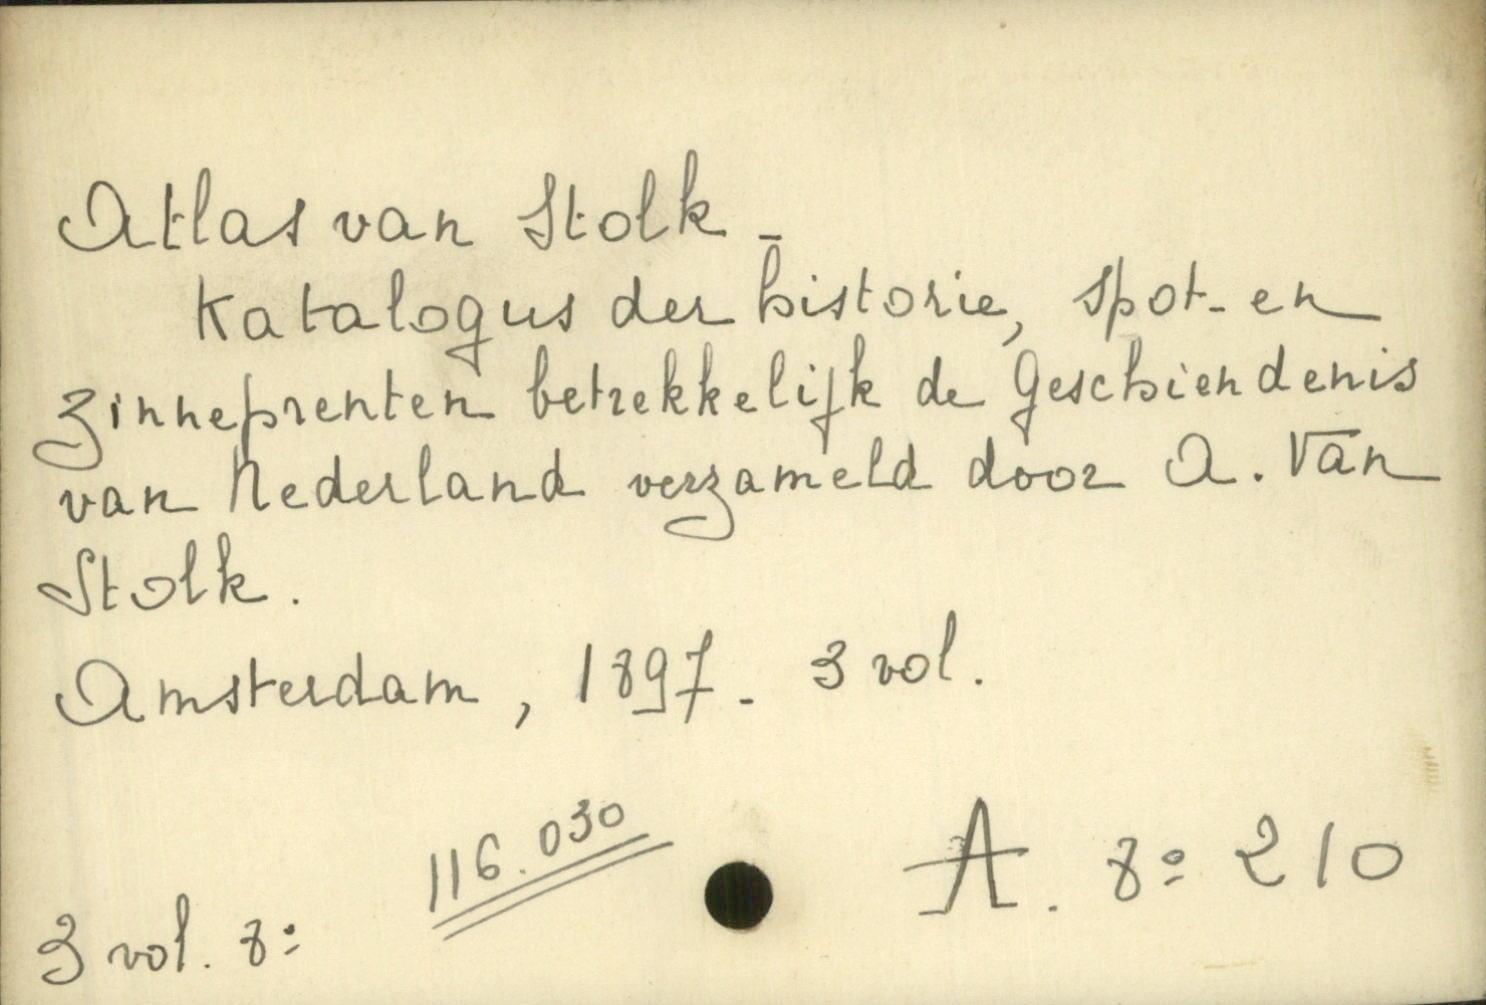 Atlas van Stolk -
Katalogus der historie, spot- en
zinneprenten betrekkelijk de Geschiendenis
van Nederland verzameld door A. Van
Stolk.
Amsterdam, 1897. 3 vol.
116.030
A. 8º 210
3 vol. 8º